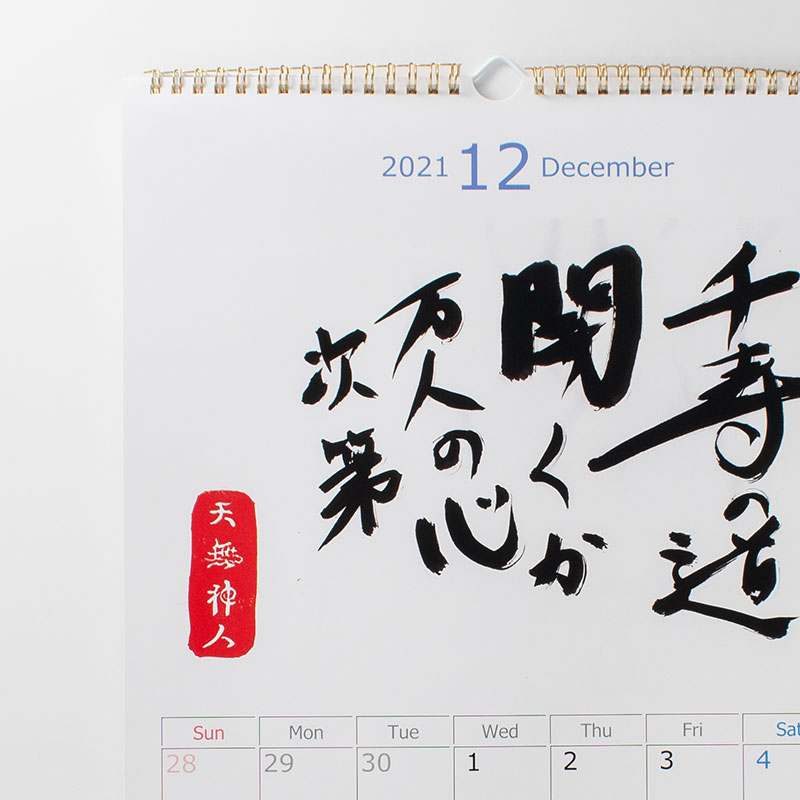 2021 12 December
千寿の道
開くか
万人の心
次第
天無神人
Sun Mon Tue Wed Thu Fri Sat
28 29 30 1 2 3 4